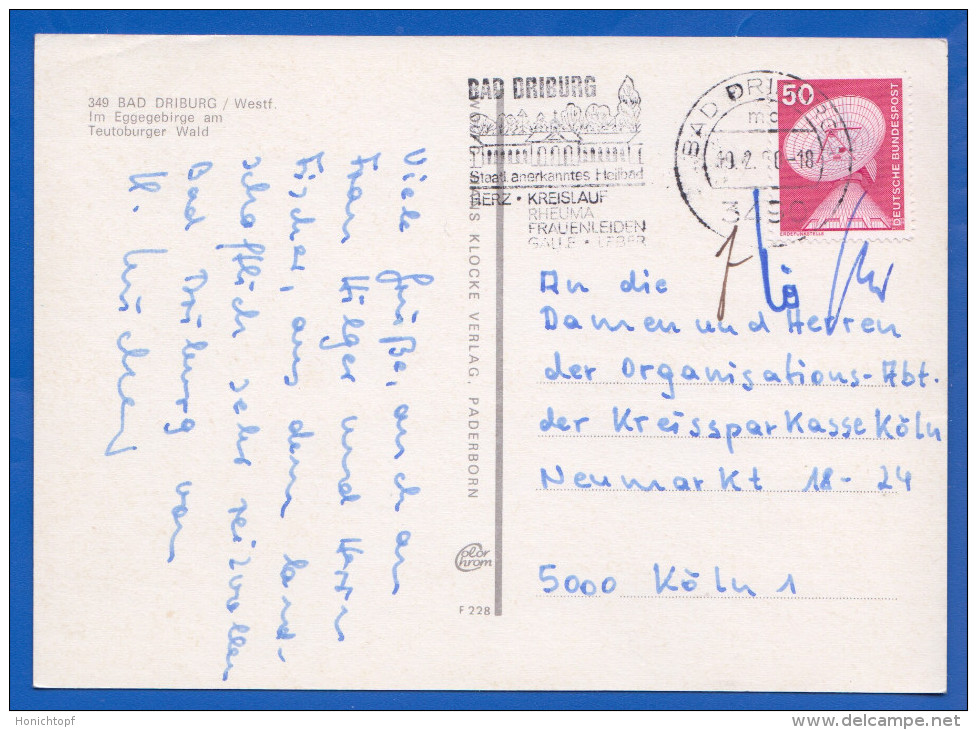 349 BAD DRIBURG / Westf.
Im Eggegebirge am
Teutoburger Wald
Viele Grüße, auch an
Frau Hilger und Herrn
Fischer, aus dem land-
schaftlich sehr reizvollen
Bad Driburg von
KLOCKE VERLAG, PADERBORN
Color
Chrom
F 228
BAD DRIBURG
Staatl. anerkanntes Heilbad
HERZ • KREISLAUF
RHEUMA
FRAUENLEIDEN
GALLE • LEBER
BAD DRIBURG
50
DEUTSCHE BUNDESPOST
ERDEFUNKSTELLE
An die
Damen und Herren
der Organisations-Abt.
der Kreissparkasse Köln
Neumarkt 18-24
5000 Köln 1
Honichtopf
www.delcampe.net